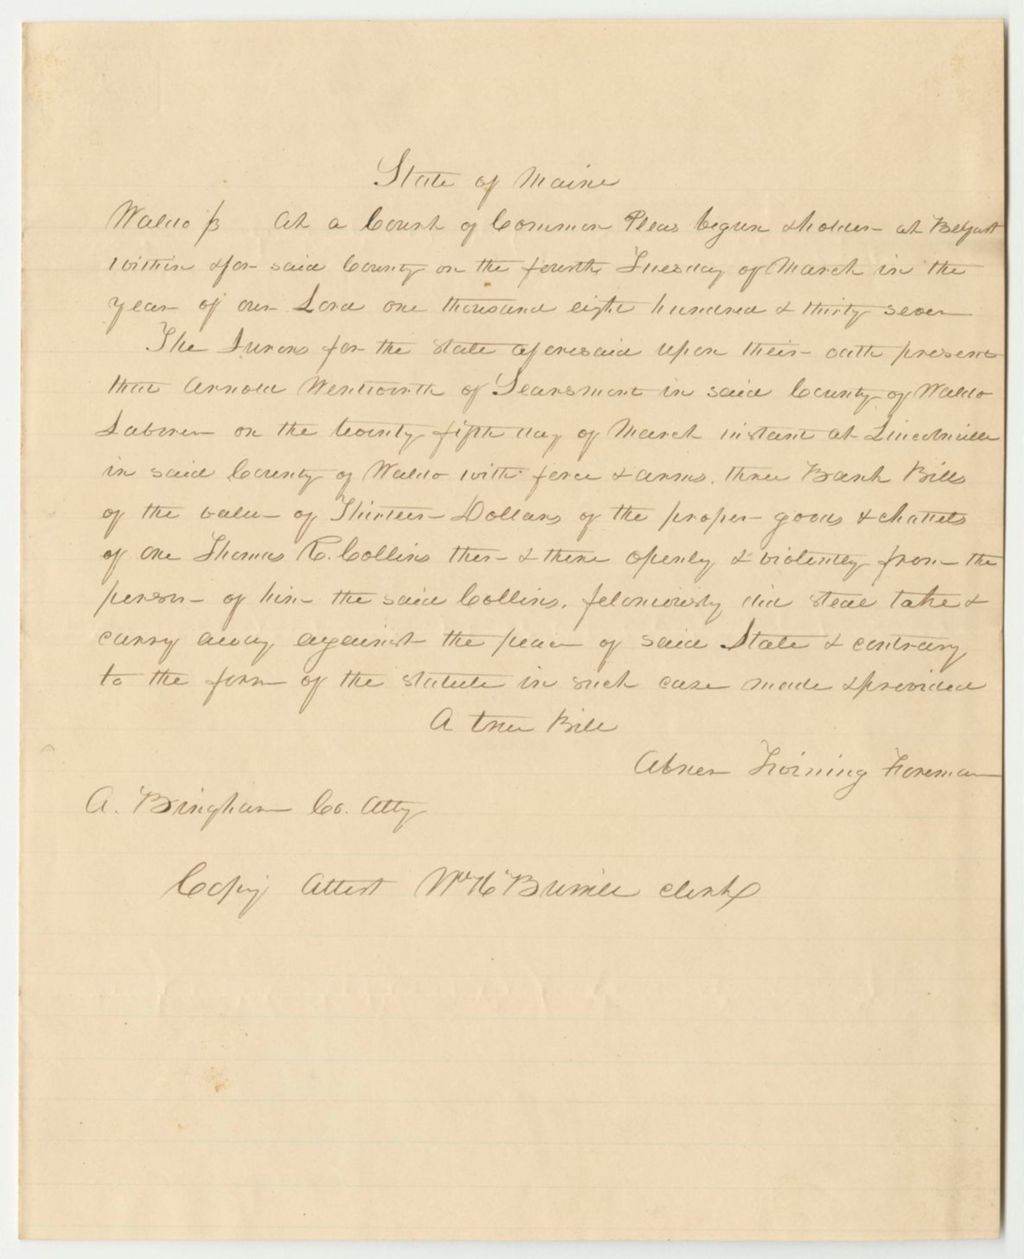 State of Maine
Waldo ss At a Court of Common Pleas begun & holden at Belfast
within & for said County on the fourth Tuesday of March in the
year of our Lord one thousand eight hundred & thirty seven
The Jurors for the State aforesaid upon their oath present
that Arnold Wentworth of Searsmont in said County of Waldo
Laborer on the twenty fifth day of March instant at Lincolnville
in said County of Waldo with force & arms. three Bank Bills
of the value of Thirteen Dollars of the proper goods & chattels
of one Thomas C. Collins then & there openly & violently from the
person of him the said Collins, feloniously did steal take &
carry away against the peace of said State & contrary
to the form of the statute in such case made & provided
A true Bill
Abner Foreman
A. Bingham Co. Atty
Copy Attest Wm H Burrill clerk